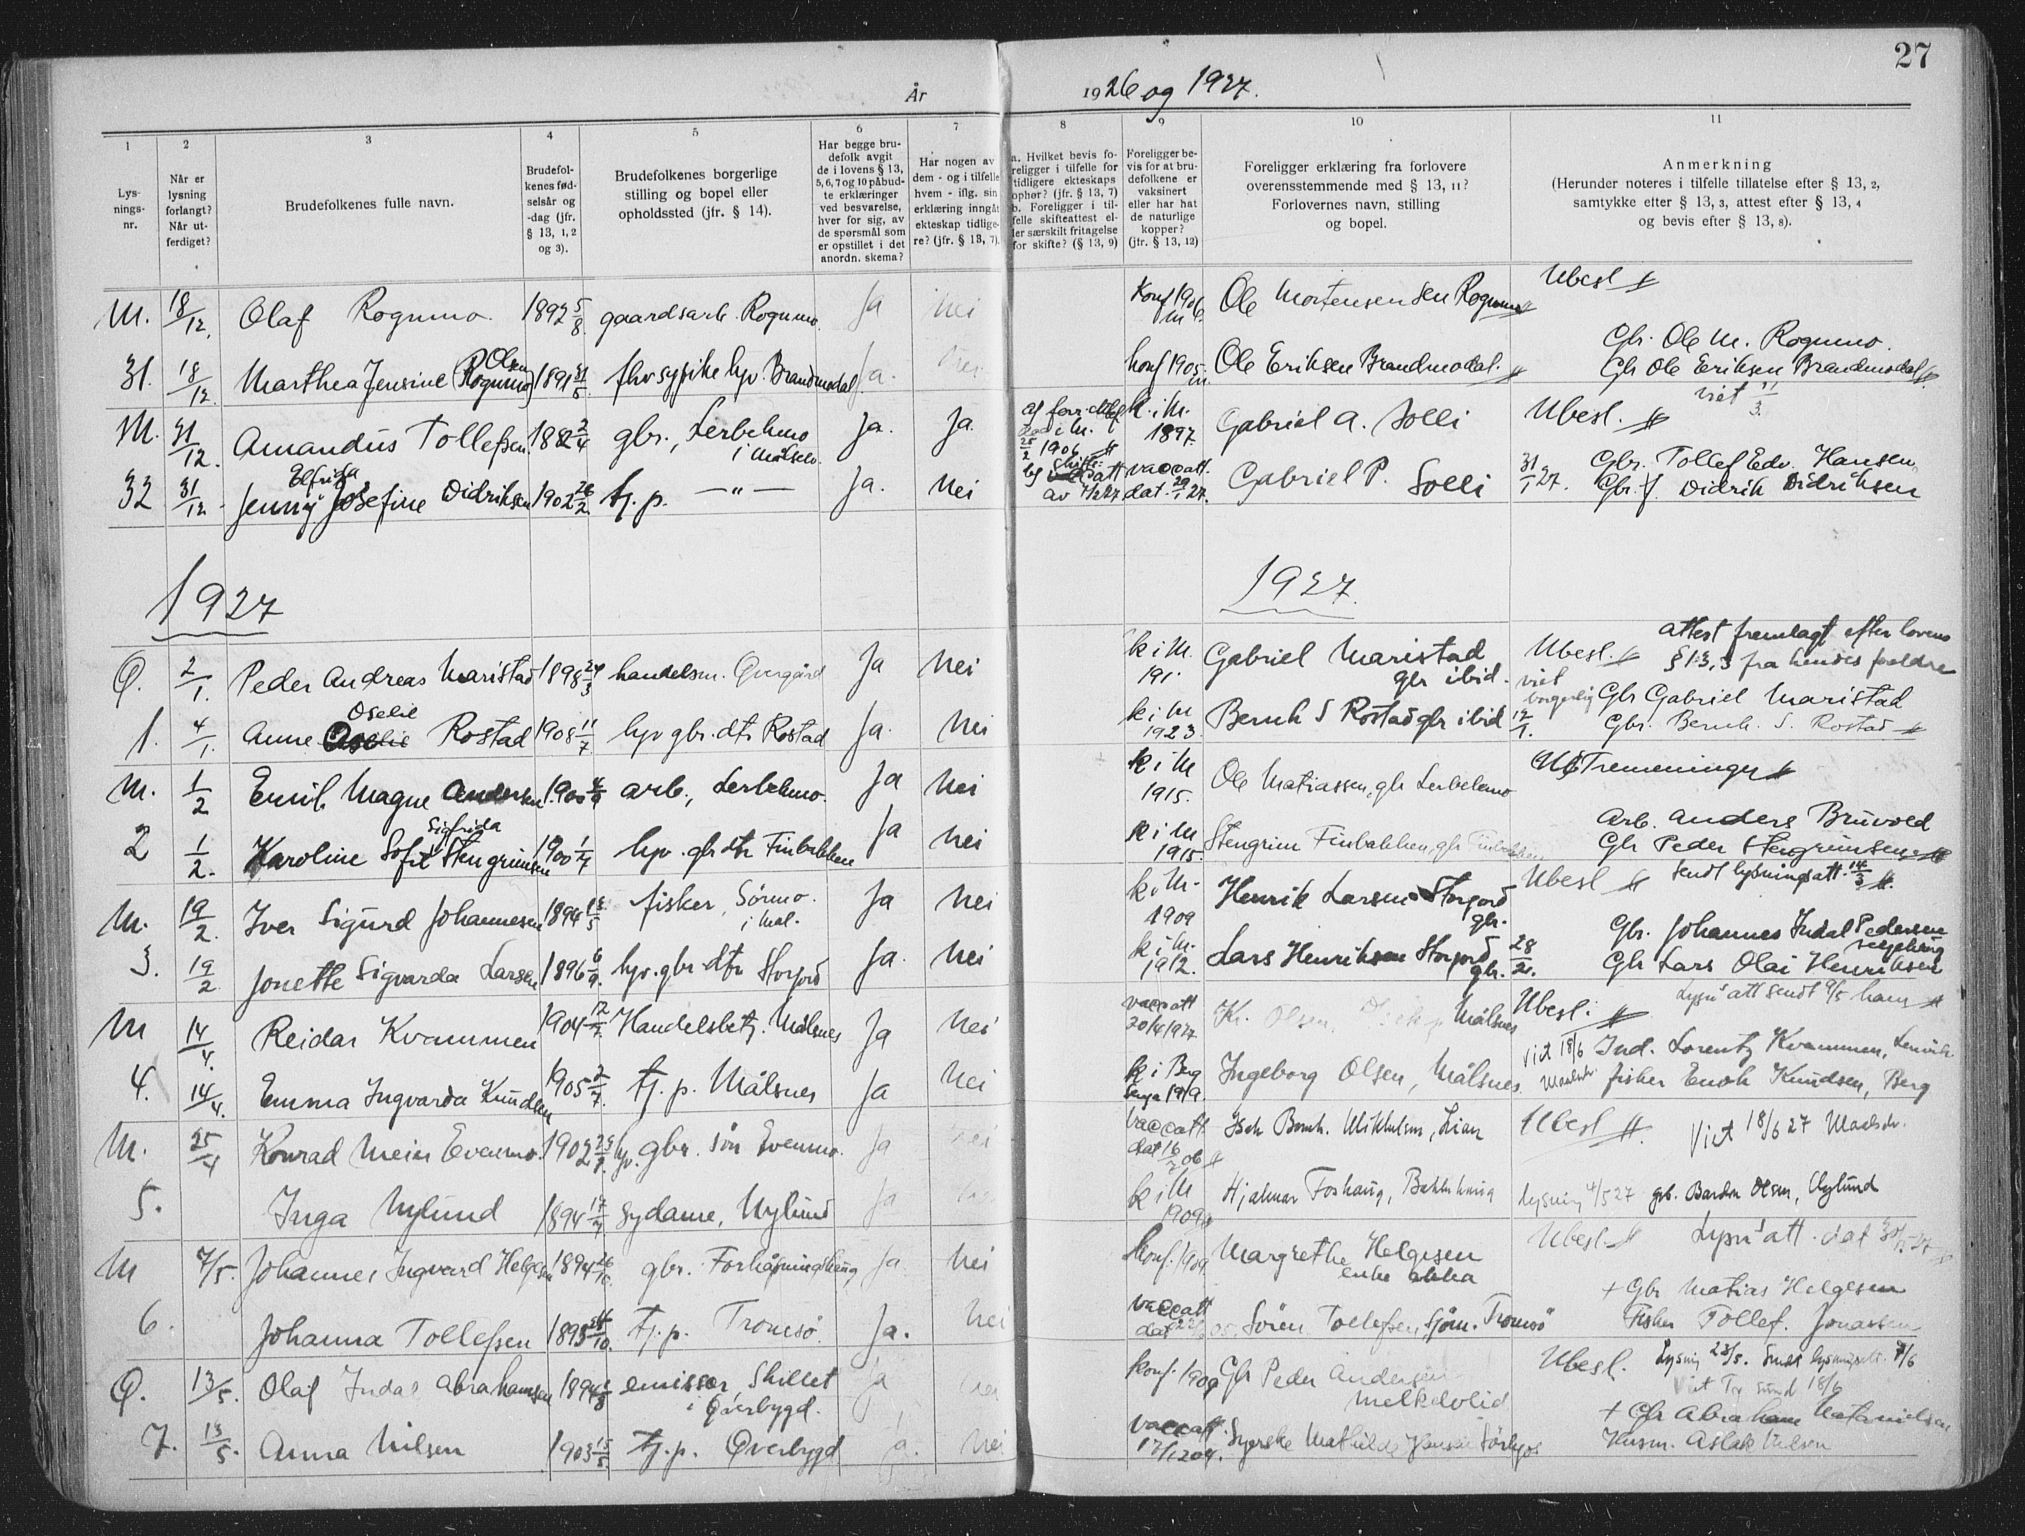 27
År 1926 og 1927.
1 2 3 4 5 6 7 8 9 10 11
Lys-
nings-
nr.
Når er
lysning
forlangt?
Når ut-
ferdiget?
Brudefolkenes fulle navn.
Brudefol-
kenes fød-
selsår og
-dag (jfr.
§ 13, 1, 2
og 3).
Brudefolkenes borgerlige
stilling og bopel eller
opholdssted (jfr. § 14).
Har begge bru-
defolk avgit
de i lovens § 13,
5, 6, 7 og 10 påbud-
te erklæringer
ved besvarelse,
hver for sig, av
de spørsmål som
er opstillet i det
anordn. skema?
Har nogen av
dem - og i tilfelle
hvem - iflg. sin
erklæring inngåt
ekteskap tidlige-
re? (jfr. § 13, 7).
a. Hvilket bevis fo-
religger i tilfelle for
tidligere ekteskaps
ophør? (jfr. § 13, 7)
b. Foreligger i til-
felle skifteattest el-
ler særskilt fritagelse
for skifte? (§ 13, 9)
Foreligger be-
vis for at bru-
defolkene er
vaksinert
eller har hat
de naturlige
kopper?
(jfr. § 13, 12)
Foreligger erklæring fra forlovere
overensstemmende med § 13, 11?
Forlovernes navn, stilling
og bopel.
Anmerkning
(Herunder noteres i tilfelle tillatelse efter § 13, 2,
samtykke efter § 13, 3, attest efter § 13, 4
og bevis efter § 13, 8).
M. 18/12. Olaf Rognmo. 1892 5/8. gaardsarb. Rognmo. Ja Nei Konf 1906 Ole Mortensen Rognmo Ubesl
Gbr. Ole M. Rognmo.
31. 18/12 Marthea Jensine Olsen (Rognmo) 1891 31/5 hv. Brandmodal Ja. Nei konf 1905 Ole Eriksen Brandmodal. Gbr Ole Eriksen Brandmodal
viet 11/3.
M. 31/12. Amandus Tollefsen 1882 2/4 gbr., Lerbekmo i Målselv. Ja. Ja. 25/2 1906 k. i M. 1897. Gabriel A. Solli Ubesl.
Gbr. Tollef Edv. Hansen
32 31/12. Jenny Elfrida Josefine Didriksen 1902 26/2 tj. p. — " — Ja. Nei vacc att. dat. 29/1 27. Gabriel P. Solli 31/1 27. Gbr. J. Didrik Didriksen
1927
1927.
Attest fremlagt efter lovens
§ 13, 3 fra hendes foreldre
Ø. 2/1. Peder Andreas Maristad 1898 24/3 handelsm. Øvergård Ja Nei k i M. 191 Gabriel Maristad gbr ibid. Ubesl.
viet borgerlig Gbr Gabriel Maristad
1. 4/1. Anne Oselie Rostad 1908 11/7 hjv gbr. dtr Rostad Ja. Nei k i M 1923 Bernh S Rostad gbr ibid 12/1. Gbr. Bernh. S. Rostad
M. 1/2 Emil Magne Andersen 1900 4/9 arb., Lerbekmo. Ja Nei k i M 1915. Ole Matiassen, gbr Lerbekmo Tremeninger
Arb. Anders Bruvold
2 1/2. Karoline Sofie Sigfrida Stengrimsen 1900 1/4 hjv. gbr dtr Finbakken Ja Nei k i M 1915. Stengrim Finbakken, gbr Finbakken Gbr Peder Stengrimsen
M. 19/2. Iver Sigurd Johannesen 1894 13/5 fisker, Sörmo. i Mal. Ja Nei k i M. 1909 Henrik Larsen Storjord gbr. Ubesl sendt lysningsatt. 14/3
Gbr. Johannes Indal Pedersen
3. 19/2 Jonette Sigvarda Larsen 1896 6/9. hjv. gbr. dtr Storjord Ja. Nei k i M. 1912. Lars Henriksen Storjord gbr. 28/2. Gbr Lars Olai Henriksen
M 14/4. Reidar Kvammen 1904 12/2 Handelsbetj. Målsnes Ja Nei vacc att 20/4 1927 Kr. Olsen Målsnes Ubesl. Lysn' att sendt 9/5 ham
Viet 18/6 Ind. Lorentz Kvammen, Lenvik
4. 14/4. Emma Ingvarda Knudsen 1905 2/7. tj. p. Målsnes Ja Nei k i Berg Senja 1919. Ingeborg Olsen, Målsnes fisker Enok Knudsen, Berg
M. 25/4 Konrad Meier Evenmo. 1902 hjv. gbr. sön Evenmo. Ja Nei vacc att dat 16/7 06 Bernh. Mikkelsen, Lian Ubesl Viet 18/6 27 Maalselv.
5. Inga Nylund 1894 17/4 sydame, Nylund Ja Nei k i M 1909 Hjalmar Foshaug, Bakkehaug lysning 4/5 27 gb. Bardon Olsen, Nylund
M 7/5. Johannes Ingvard Helgesen 1894 26/10 gbr. Forhåpningshaug Ja. Nei Konf. 1909 Margrethe Helgesen enke Ubesl Lysn' att. dat 30/5 27
+ Gbr Matias Helgesen
6. Johanna Tollefsen 1895 /10. tj. p. Tromsö. Ja. Nei vacc att dat Sören Tollefsen, sjöm. Tromsö Fisker Tollef. Jonassen
Ø. 13/5. Olaf Indal Abrahamsen 1894 emissær, Skillet i Øverbygd. Ja Nei Konf. 1909 Gbr Peder Andersen Melkelvlid Ubesl. Lysning 23/5. Sendt lysningsatt. 7/6
Viet 18/6
+ Gbr Abraham Natanielsen
7. 13/5. Anna Nilsen 1903 15/5 tj. p. Øverbygd Ja. Nei vacc att. 17/12 04. Syerske Mathilde Husm. Aslak Nilsen